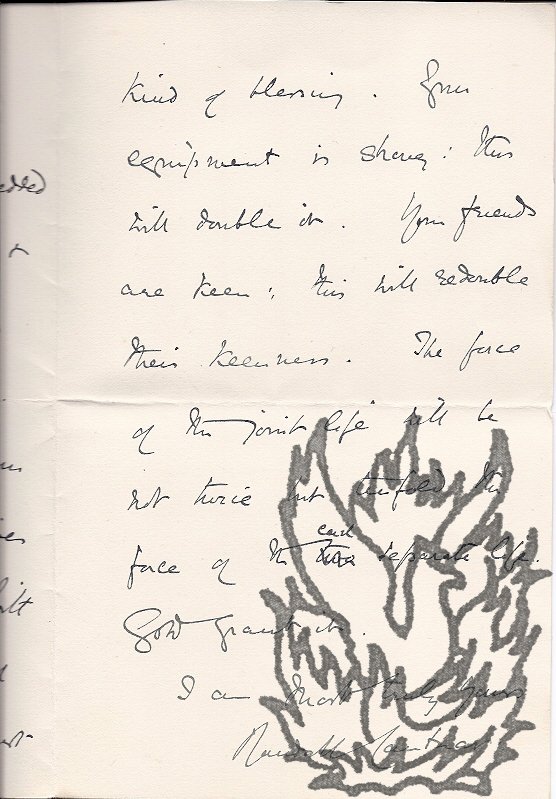 edded
&
kind of blessing. Your
equipment is strong: this
will double it. Your friends
are keen; this will redouble
their keenness. The force
of the joint life will be
not twice but tenfold the
force of the each separate life.
God grant it.
I am most truly yours
Randall